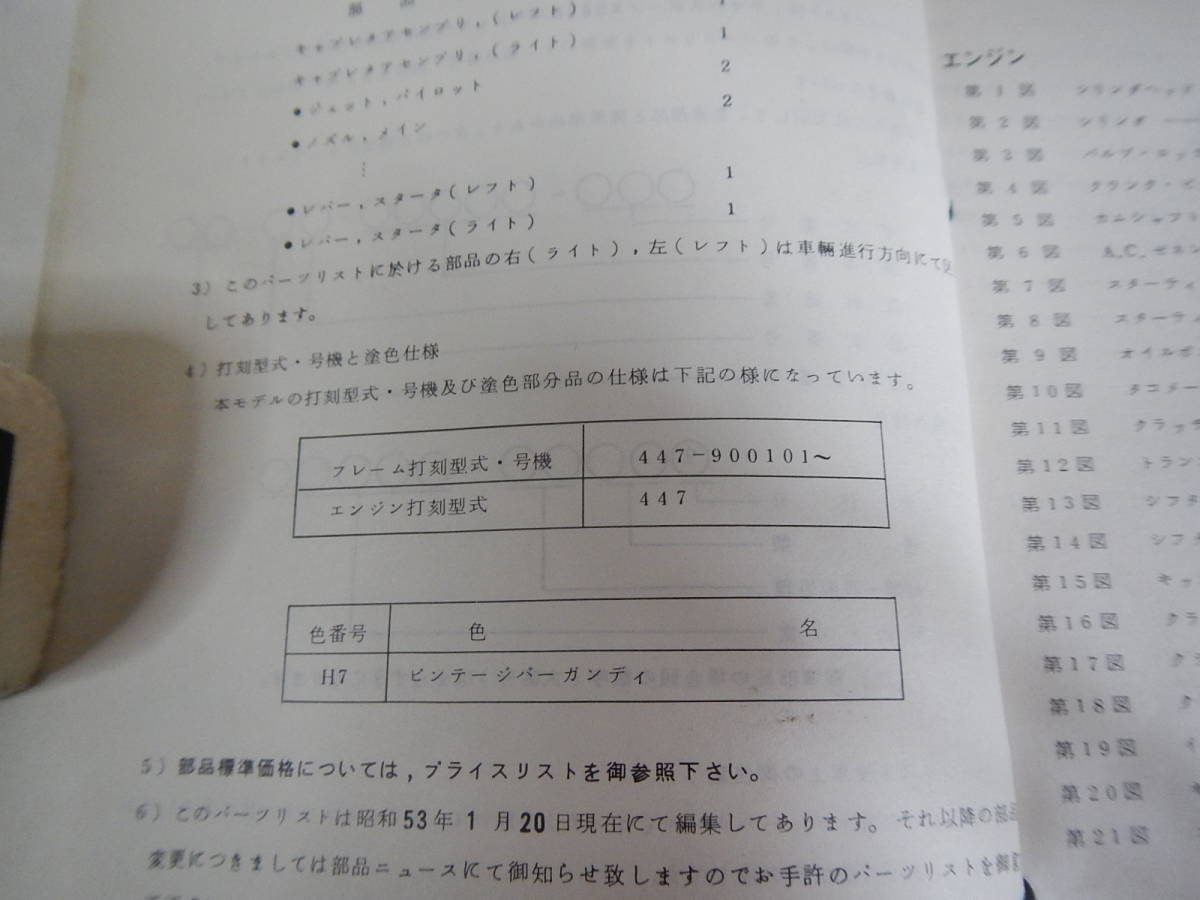 部品
キャブレタアセンブリ,(レフト) 1
キャブレタアセンブリ,(ライト) 1
●ジェット,パイロット 2
●ノズル,メイン 2
⋮
●レバー,スタータ(レフト) 1
●レバー,スタータ(ライト) 1
3) このパーツリストに於ける部品の右(ライト),左(レフト)は車輛進行方向にて
してあります。
4) 打刻型式・号機と塗色仕様
本モデルの打刻型式・号機及び塗色部分品の仕様は下記の様になっています。
フレーム打刻型式・号機 447-900101~
エンジン打刻型式 447
色番号 色名
H7 ビンテージバーガンディ
5) 部品標準価格については,プライスリストを御参照下さい。
6) このパーツリストは昭和53年1月20日現在にて編集してあります。それ以降の部品
変更につきましては部品ニュースにて御知らせ致しますのでお手許のパーツリストを御
エンジン
第1図 シリンダヘッド
第2図 シリンダ
第3図 バルブ・ロッ
第4図 クランク・ピ
第5図 カムシャフト
第6図 A.C.ゼネ
第7図 スターティ
第8図 スターテ
第9図 オイルポ
第10図 タコメー
第11図 クラッチ
第12図 トラン
第13図 シフタ
第14図 シフ
第15図 キッ
第16図 クラ
第17図 ク
第18図 ク
第19図
第20図
第21図